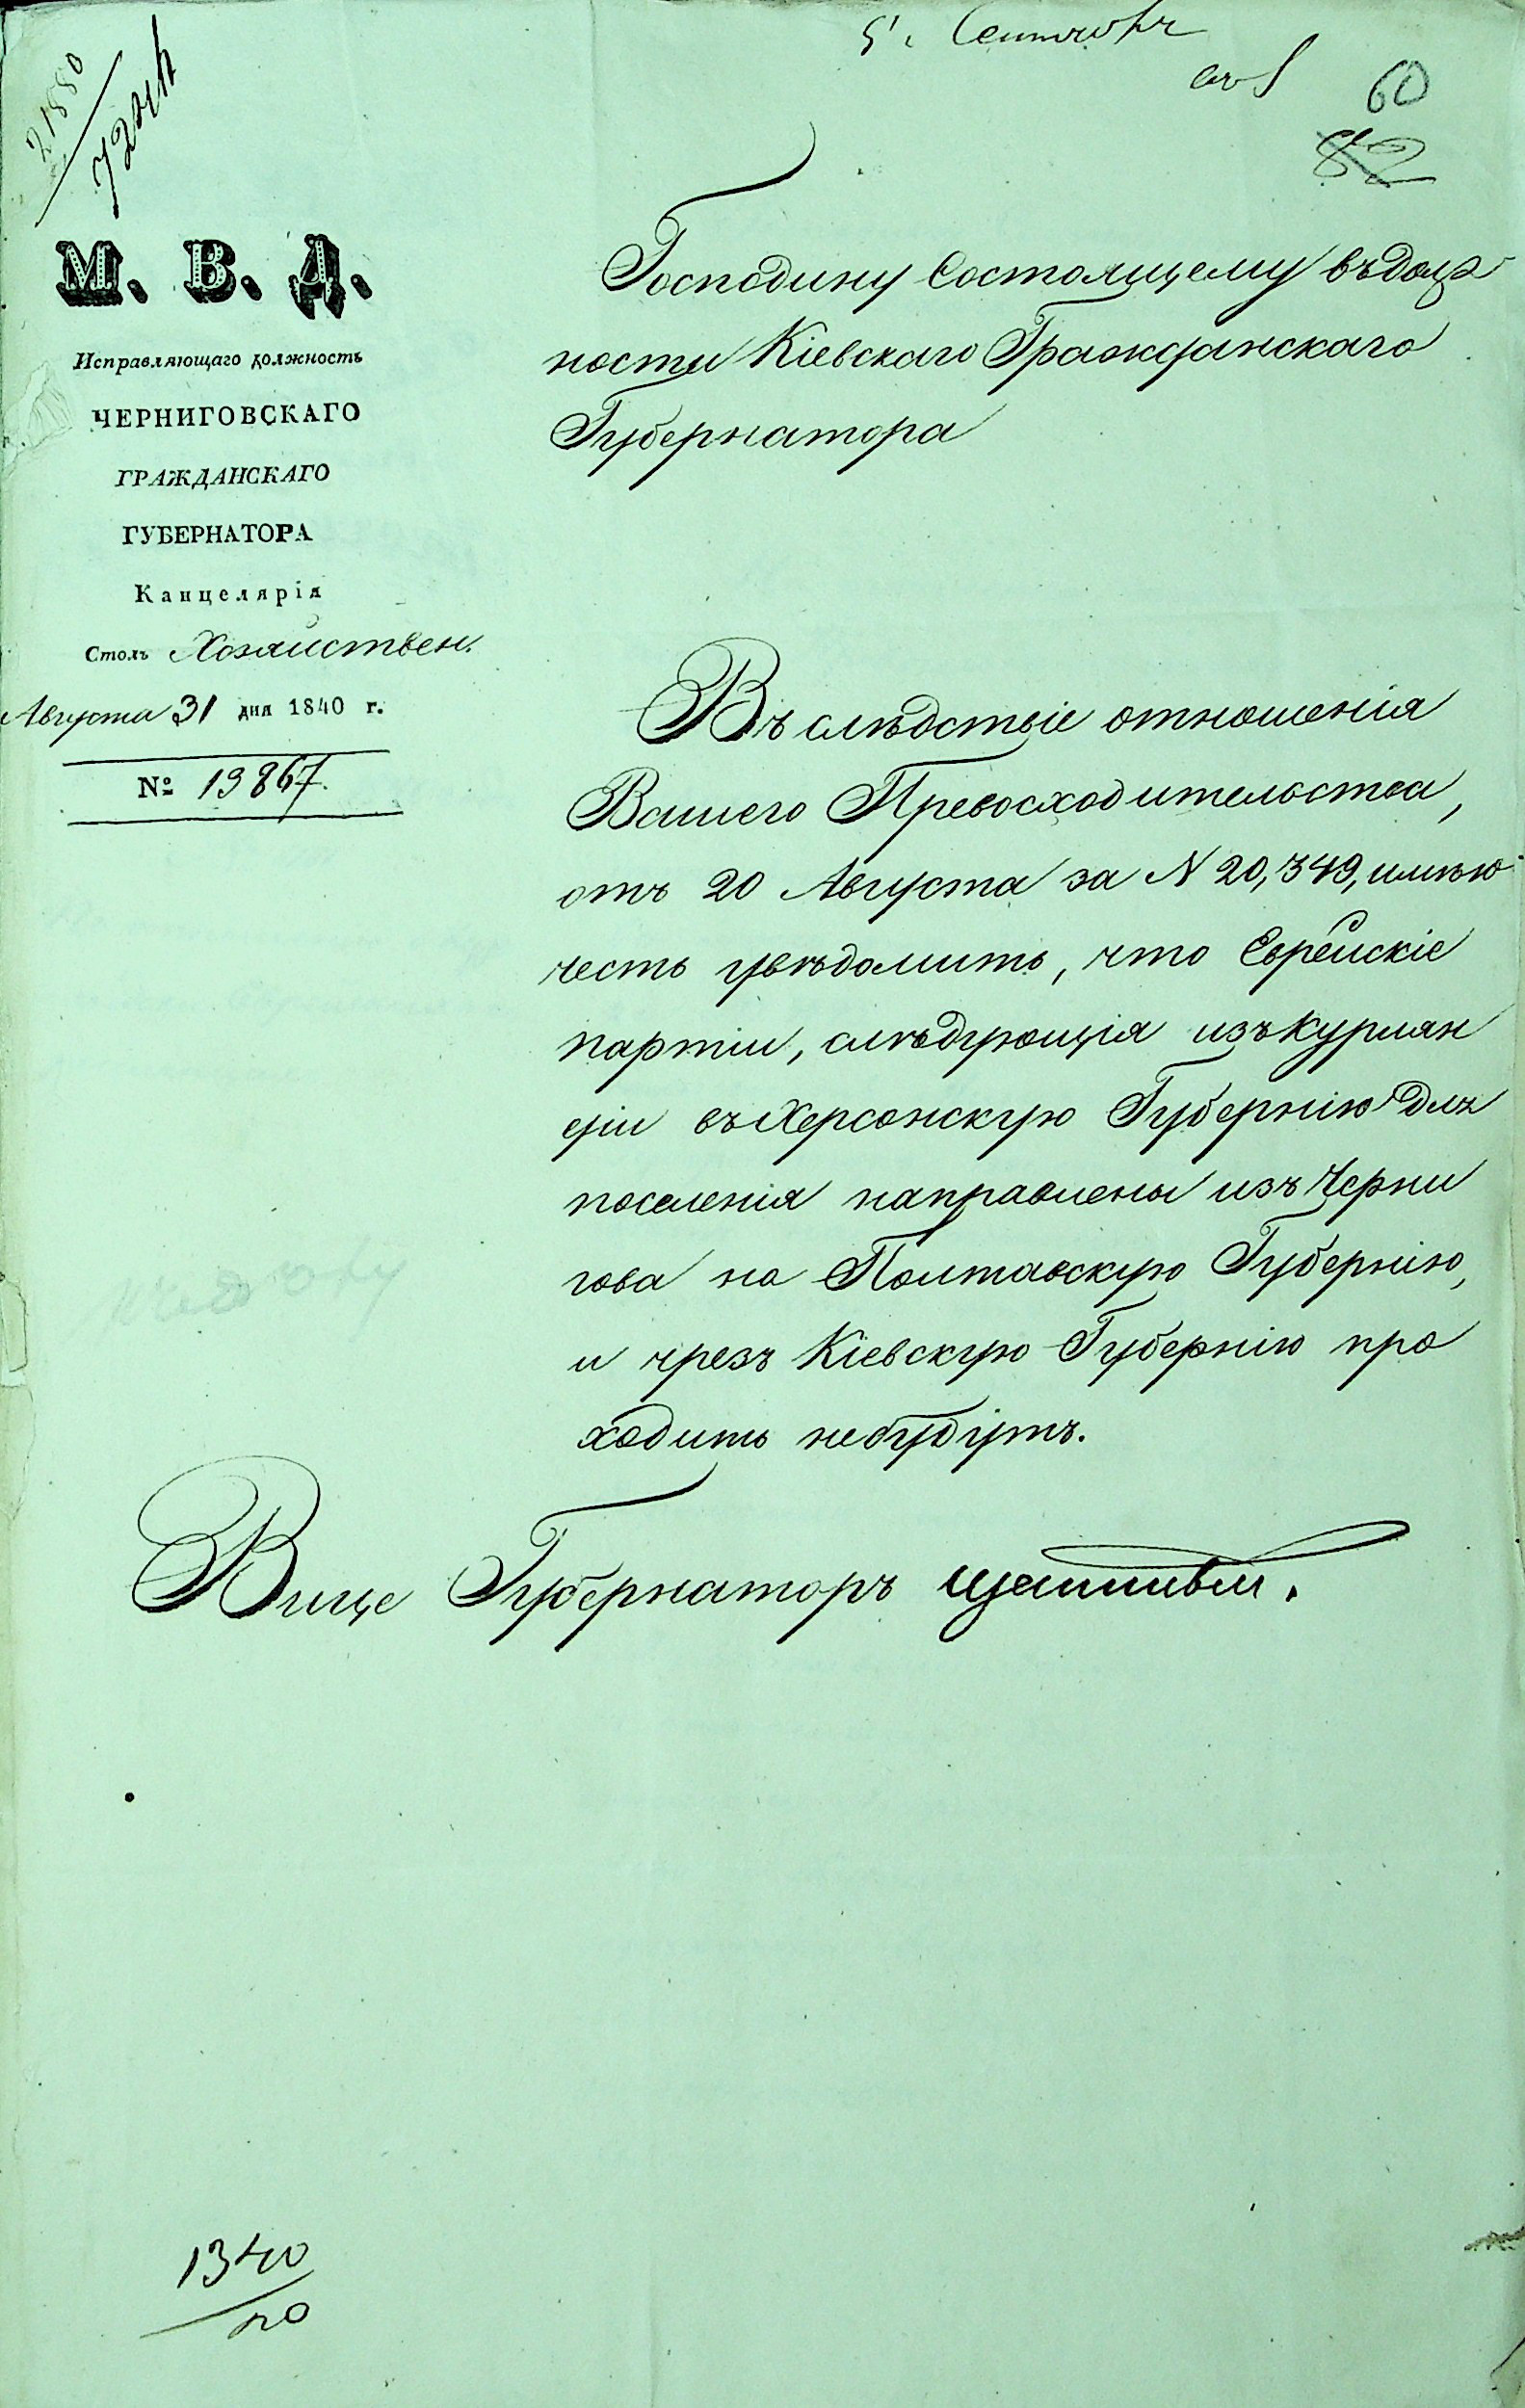 5. Сентября
60
82
21880
М. В. Д.
Исправляющаго должность
ЧЕРНИГОВСКАГО
ГРАЖДАНСКАГО
ГУБЕРНАТОРА
Канцелярія
Столъ Хозяйствен.
Августа 31 дня 1840 г.
№ 13867.
Господину Состоящему въ долж
ности Кіевскаго Гражданскаго
Губернатора
Въ слѣдствіе отношенія
Вашего Превосходительства,
отъ 20 Августа за N 20,349, имѣю
честь увѣдомить, что Еврейскіе
партіи, слѣдующія изъ Курлян
діи въ Херсонскую Губернію для
поселенія направлены изъ Черни
гова на Полтавскую Губернію,
и чрезъ Кіевскую Губернію про
ходить небудутъ.
Вице Губернаторъ
1340